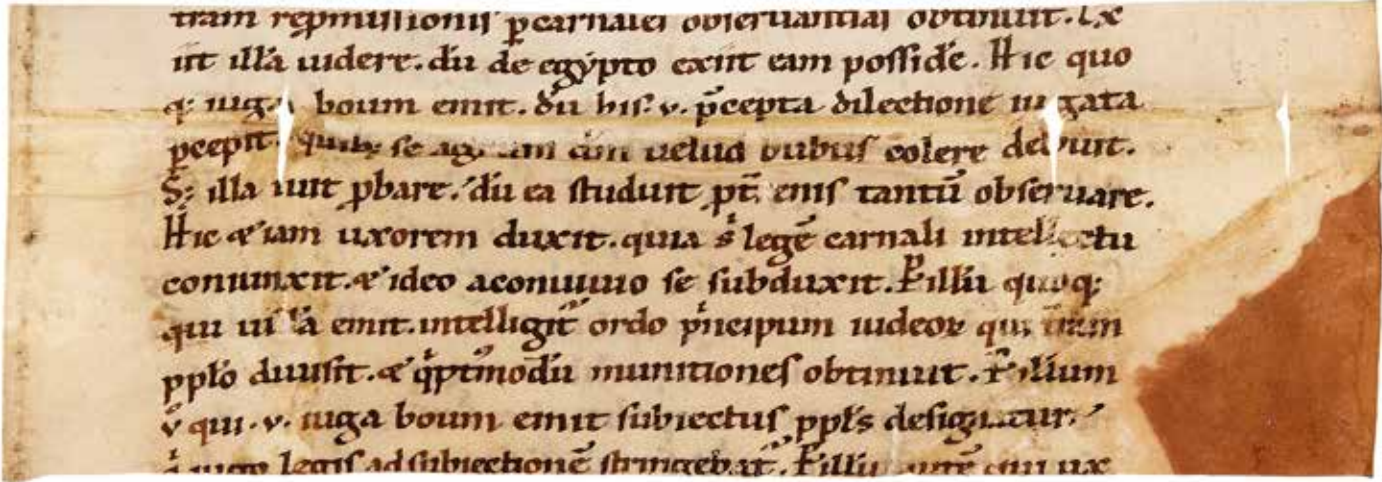 tram rep̄missionis ꝑcarnales obseruantias obtinuit. Ex
iit illā uidere. dū de egẏpto exiit eam possidē. Hic quo
q; iuga boum emit. dū his .v. p̄cepta dilectione iugata
ꝑcepit. quib; se uelud bubus colere debuit.
S; illa iuit ꝓbare. dū ea studuit pt̄ enis tantū obseruare.
Hic &iam uxorem duxit. quia sͥ legē carnali intellectu
coniunxit. & ideo aconuiuio se subduxit. P illū quoq;
qui uillā emit. intelligit᷑ ordo pͥncipum iudeoꝝ qui
pplo diuisit. & qͥptmodū munitiones obtinuit. P illum
v̊ qui .v. iuga boum emit subiectus ppl̄s designatur.
qͥ iugo legis ad subiectionē stringebat᷑. P illū autē qui ux